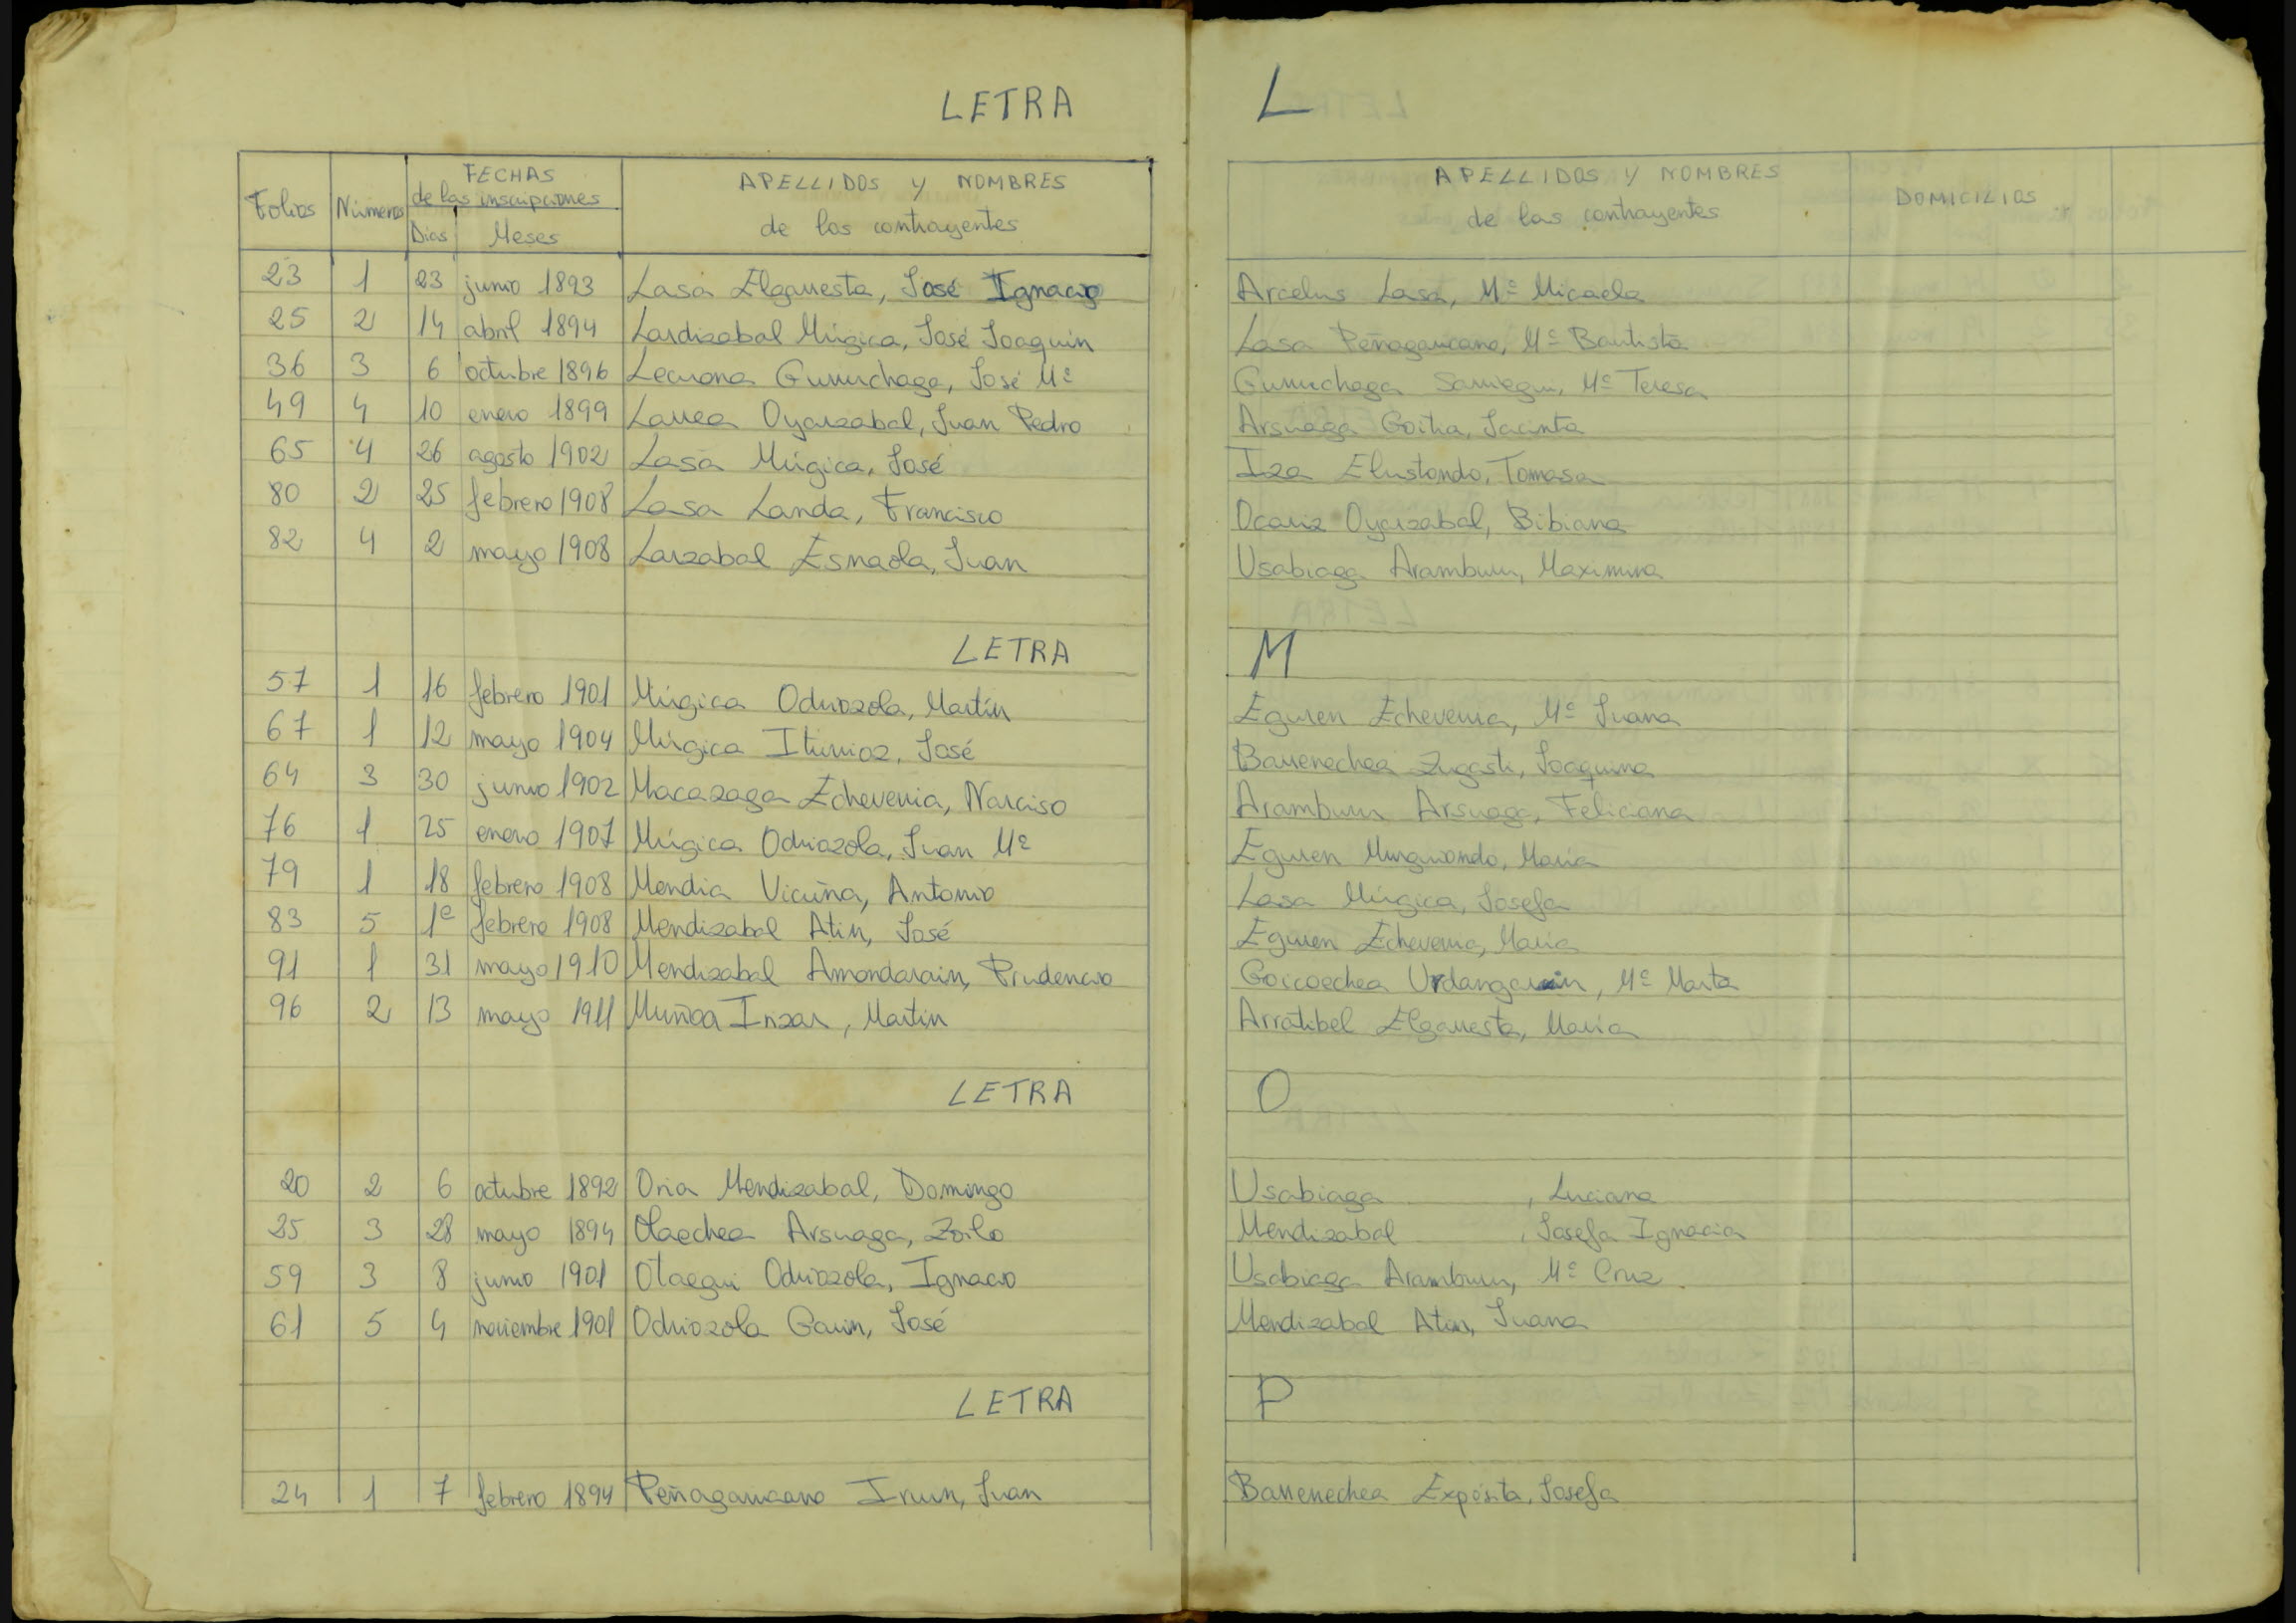 LETRA L
Folios Números FECHAS de las inscripciones Dias Meses APELLIDOS Y NOMBRES de los contrayentes APELLIDOS Y NOMBRES de los contrayentes DOMICILIOS
23 1 23 junio 1893 Lasa Elgarresta, José Ignacio Arcelus Lasa, Mª Micaela
25 2 14 abril 1894 Lardizabal Múgica, José Joaquin Lasa Peñagaricano, Mª Bautista
36 3 6 octubre 1896 Lecuona Guruchaga, José Mª Guruchaga Sarriegui, Mª Teresa
49 4 10 enero 1899 Larrea Oyarzabal, Juan Pedro Arsuaga Goitia, Jacinta
65 4 26 agosto 1902 Lasa Múgica, José Iza Elustondo, Tomasa
80 2 25 febrero 1908 Lasa Landa, Francisco Ocariz Oyarzabal, Bibiana
82 4 2 mayo 1908 Larzabal Esnaola, Juan Usabiaga Aramburu, Maximina
LETRA M
57 1 16 febrero 1901 Múgica Odriozola, Martín Eguren Echeverria, Mª Juana
67 1 12 mayo 1904 Múgica Iturrioz, José Barrenechea Zugasti, Joaquina
64 3 30 junio 1902 Macazaga Echeverria, Narciso Aramburu Arsuaga, Feliciana
76 1 25 enero 1907 Múgica Odriozola, Juan Mª Eguren Murguiondo, María
79 1 18 febrero 1908 Mendia Vicuña, Antonio Lasa Múgica, Josefa
83 5 1º febrero 1908 Mendizabal Atin, José Eguren Echeverria, Maria
91 1 31 mayo 1910 Mendizabal Amondarain, Prudencio Goicoechea Urdangarin, Mª Marta
96 2 13 mayo 1911 Muñoa Inzar, Martin Arratibel Elgarresta, María
LETRA O
20 2 6 octubre 1892 Oria Mendizabal, Domingo Usabiaga , Luciana
25 3 28 mayo 1894 Olaechea Arsuaga, Zoilo Mendizabal , Josefa Ignacia
59 3 8 junio 1901 Otaegui Odriozola, Ignacio Usabiaga Aramburu, Mª Cruz
61 5 4 noviembre 1901 Odriozola Garin, José Mendizabal Atin, Juana
LETRA P
24 1 7 febrero 1894 Peñagaricano Irun, Juan Barrenechea Expósita, Josefa